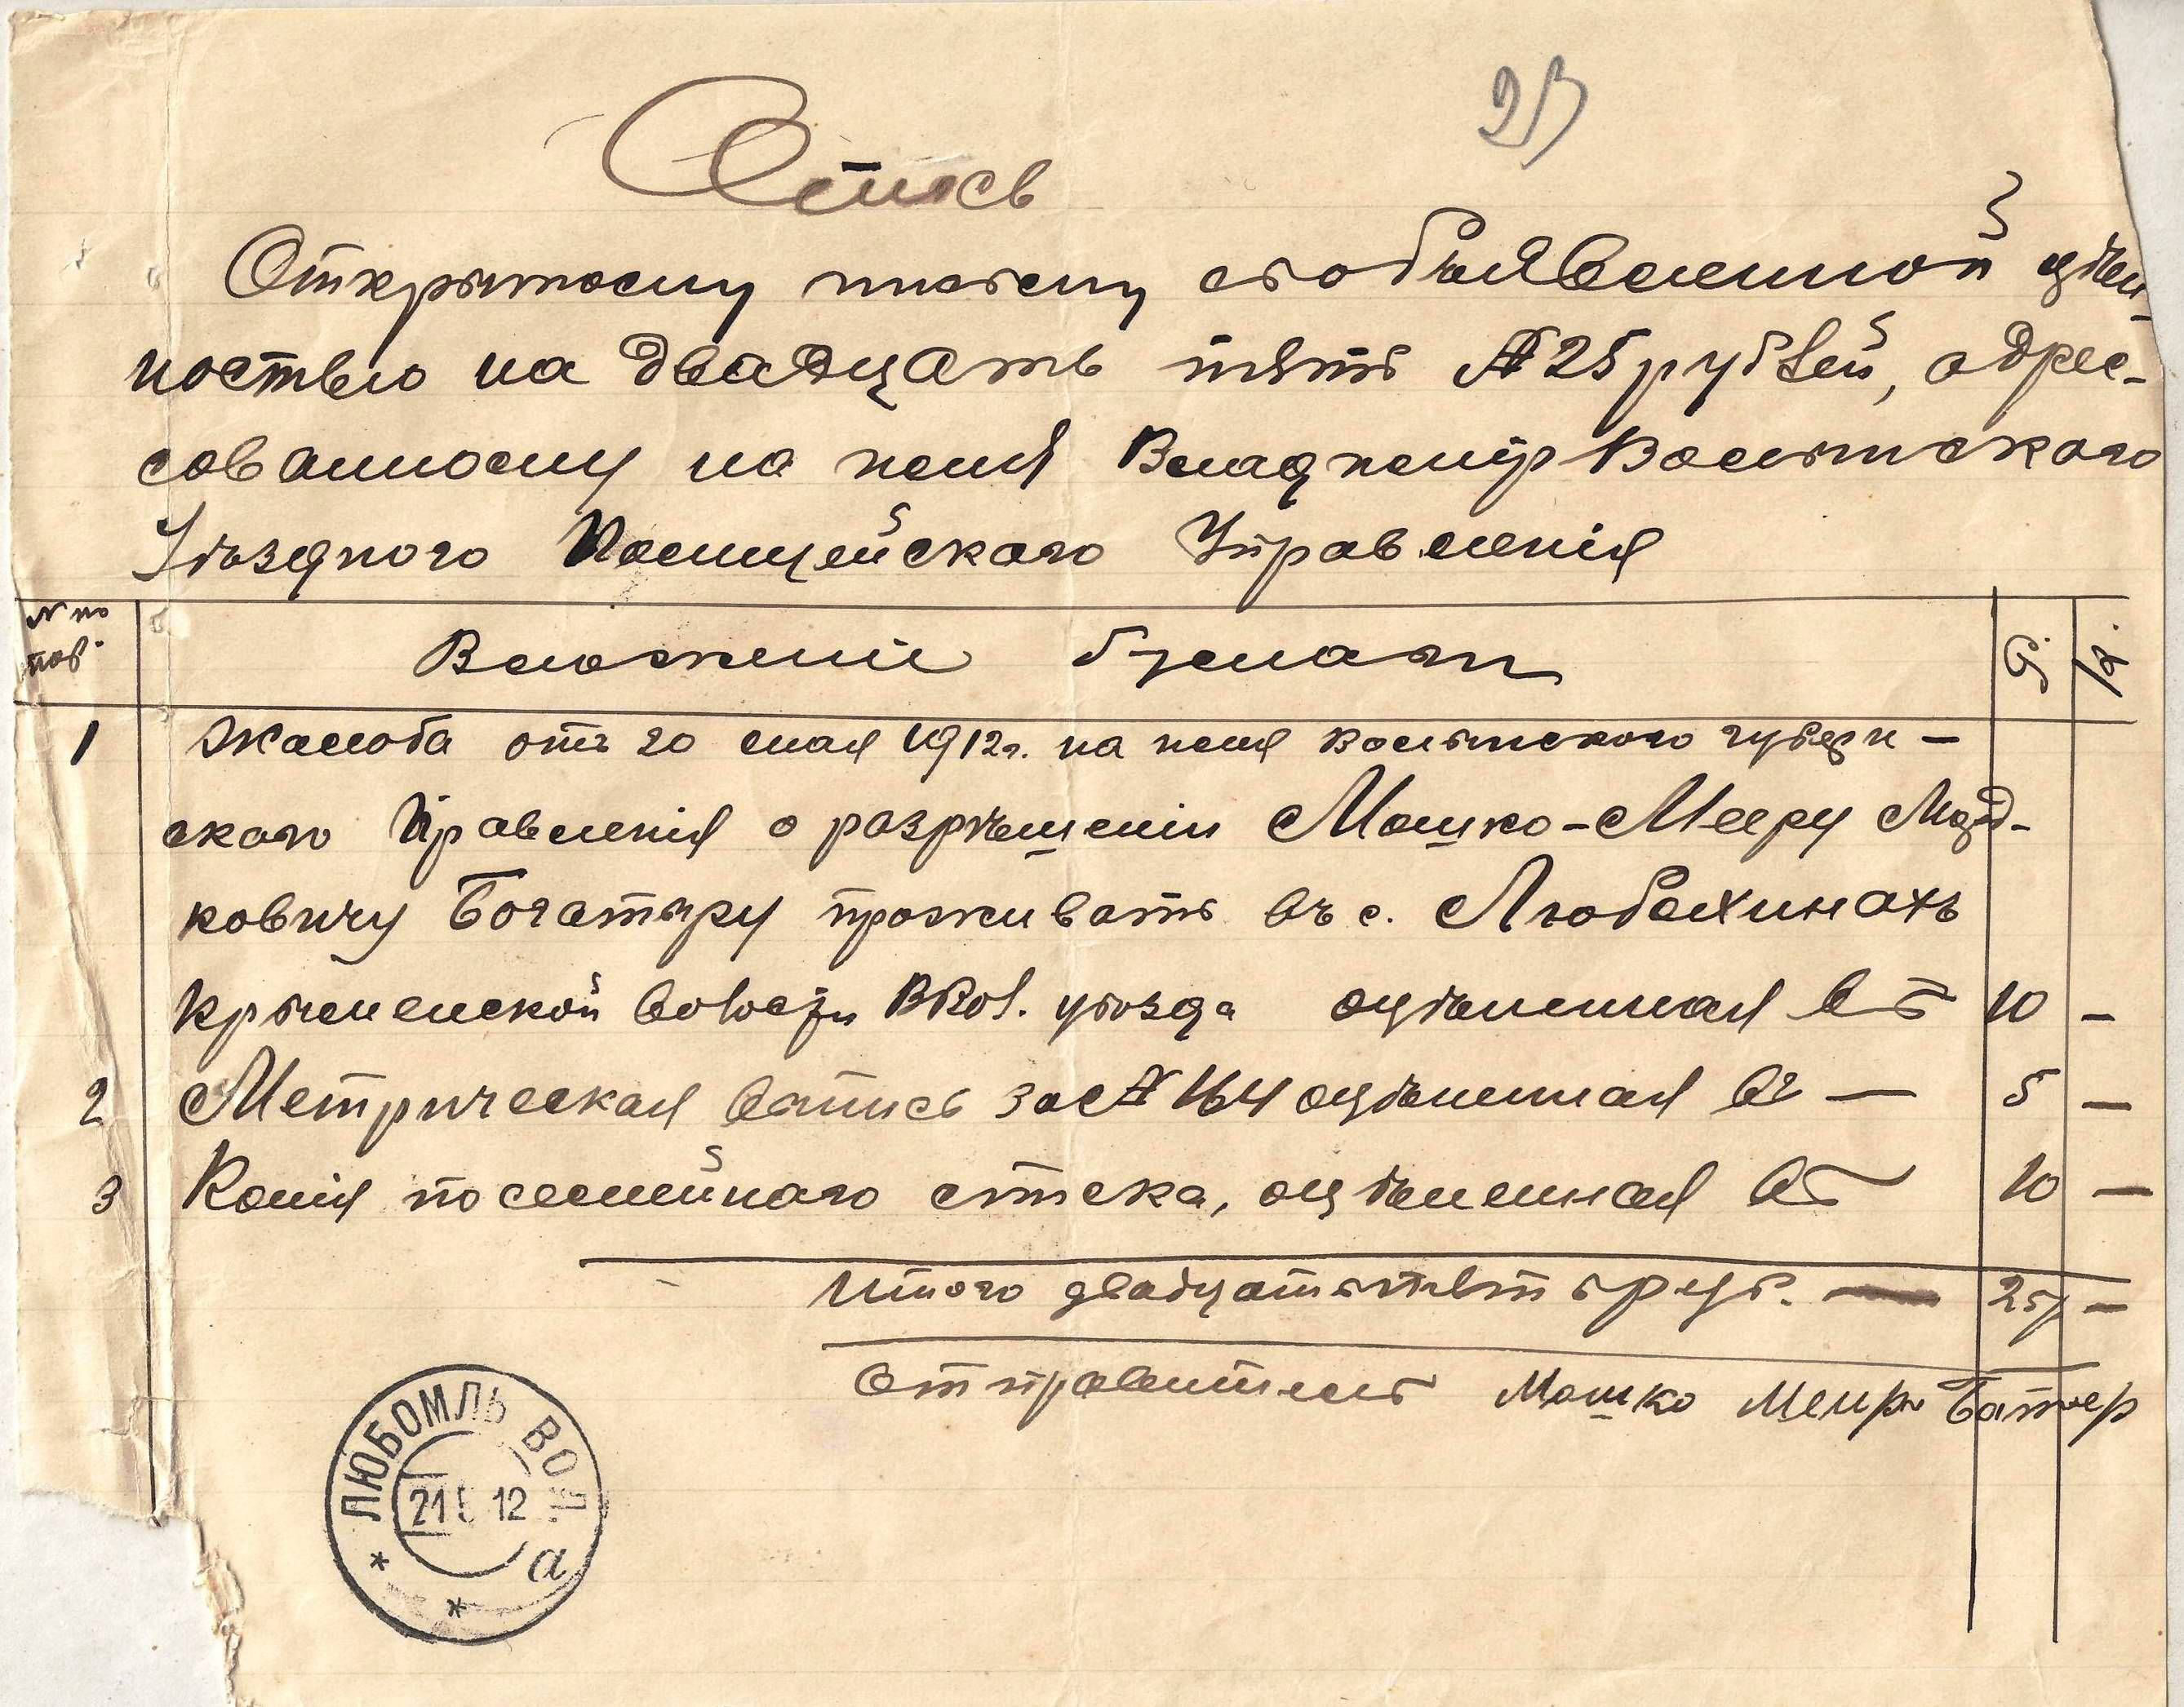 Опись
Открытому письму съ объявленной цѣн-
ностью на двадцать пять № 25 рублей, адрес-
сованному на имя Владимір Волынского
Уѣзднаго Полицейскаго Управленія
№ по
пор.
Вложеніе бумаги
Р. К.
1 Жалоба отъ 20 мая 1912 г. на имя Волынского губерн-
скаго Правленія о разрѣшеніи Мошко-Мееру Морд-
ковичу Богатыру проживать въ с. Любохинахъ
Крымненской волости ВВол. уѣзда оцѣненная въ 10 —
2 Метрическая выпись за № 164 оцѣненная въ — 5 —
3 Копія посемейнаго списка, оцѣненная въ 10 —
Итого двадцать пять руб. — 25 р —
Отправитель Мошко Меиръ
ЛЮБОМЛЬ ВОЛ.
21 5 12
а